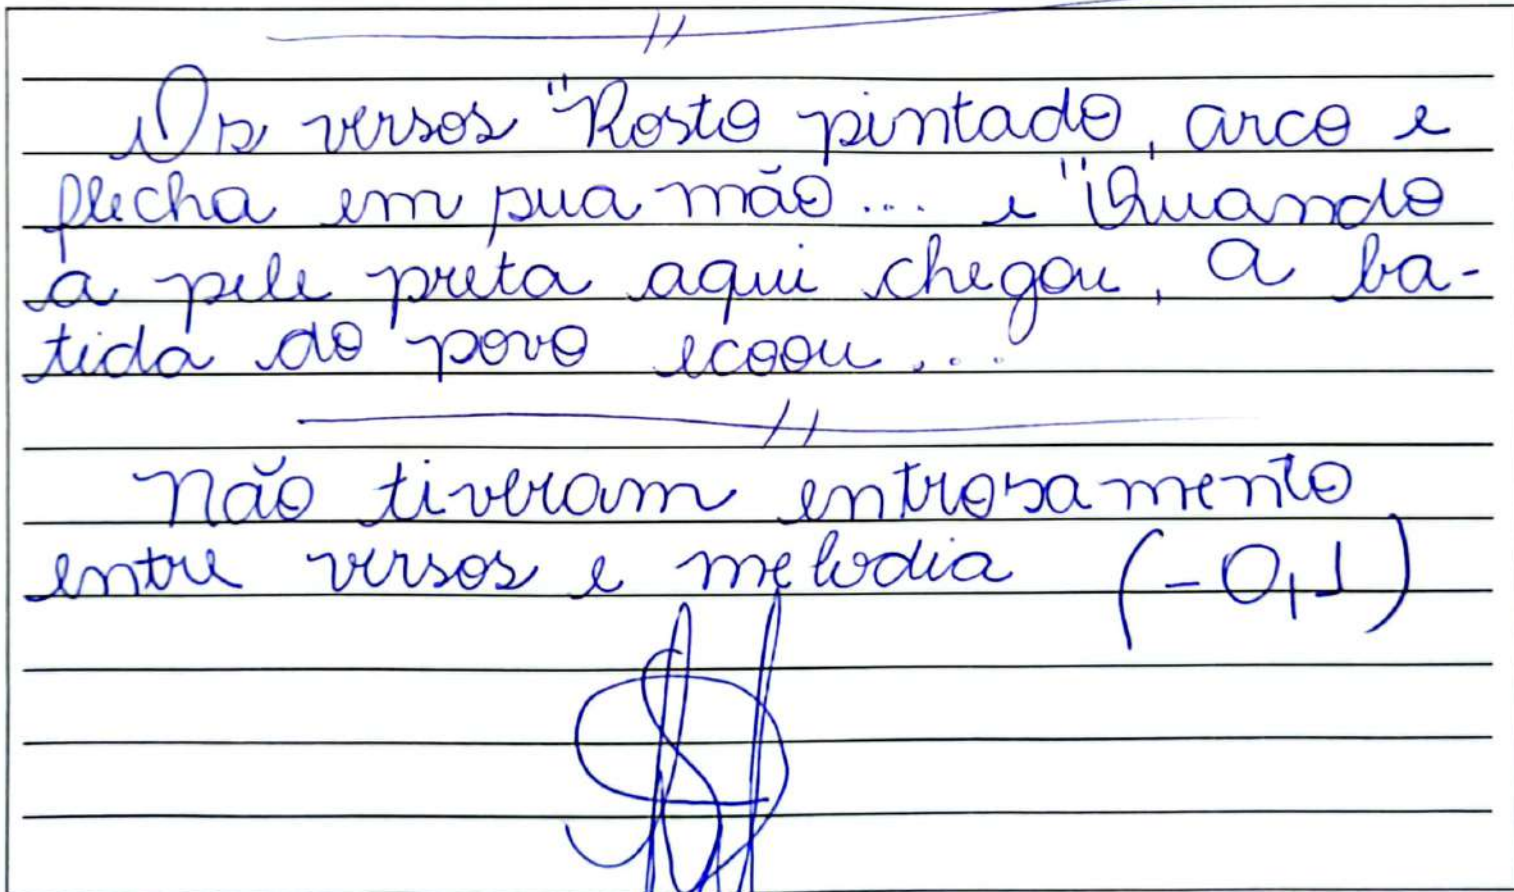 Os versos "Rosto pintado, arco e
flecha em sua mão... e "Quando
a pele preta aqui chegou, a ba-
tida do povo ecoou...
Não tiveram entrosamento
entre versos e melodia (-0,1)